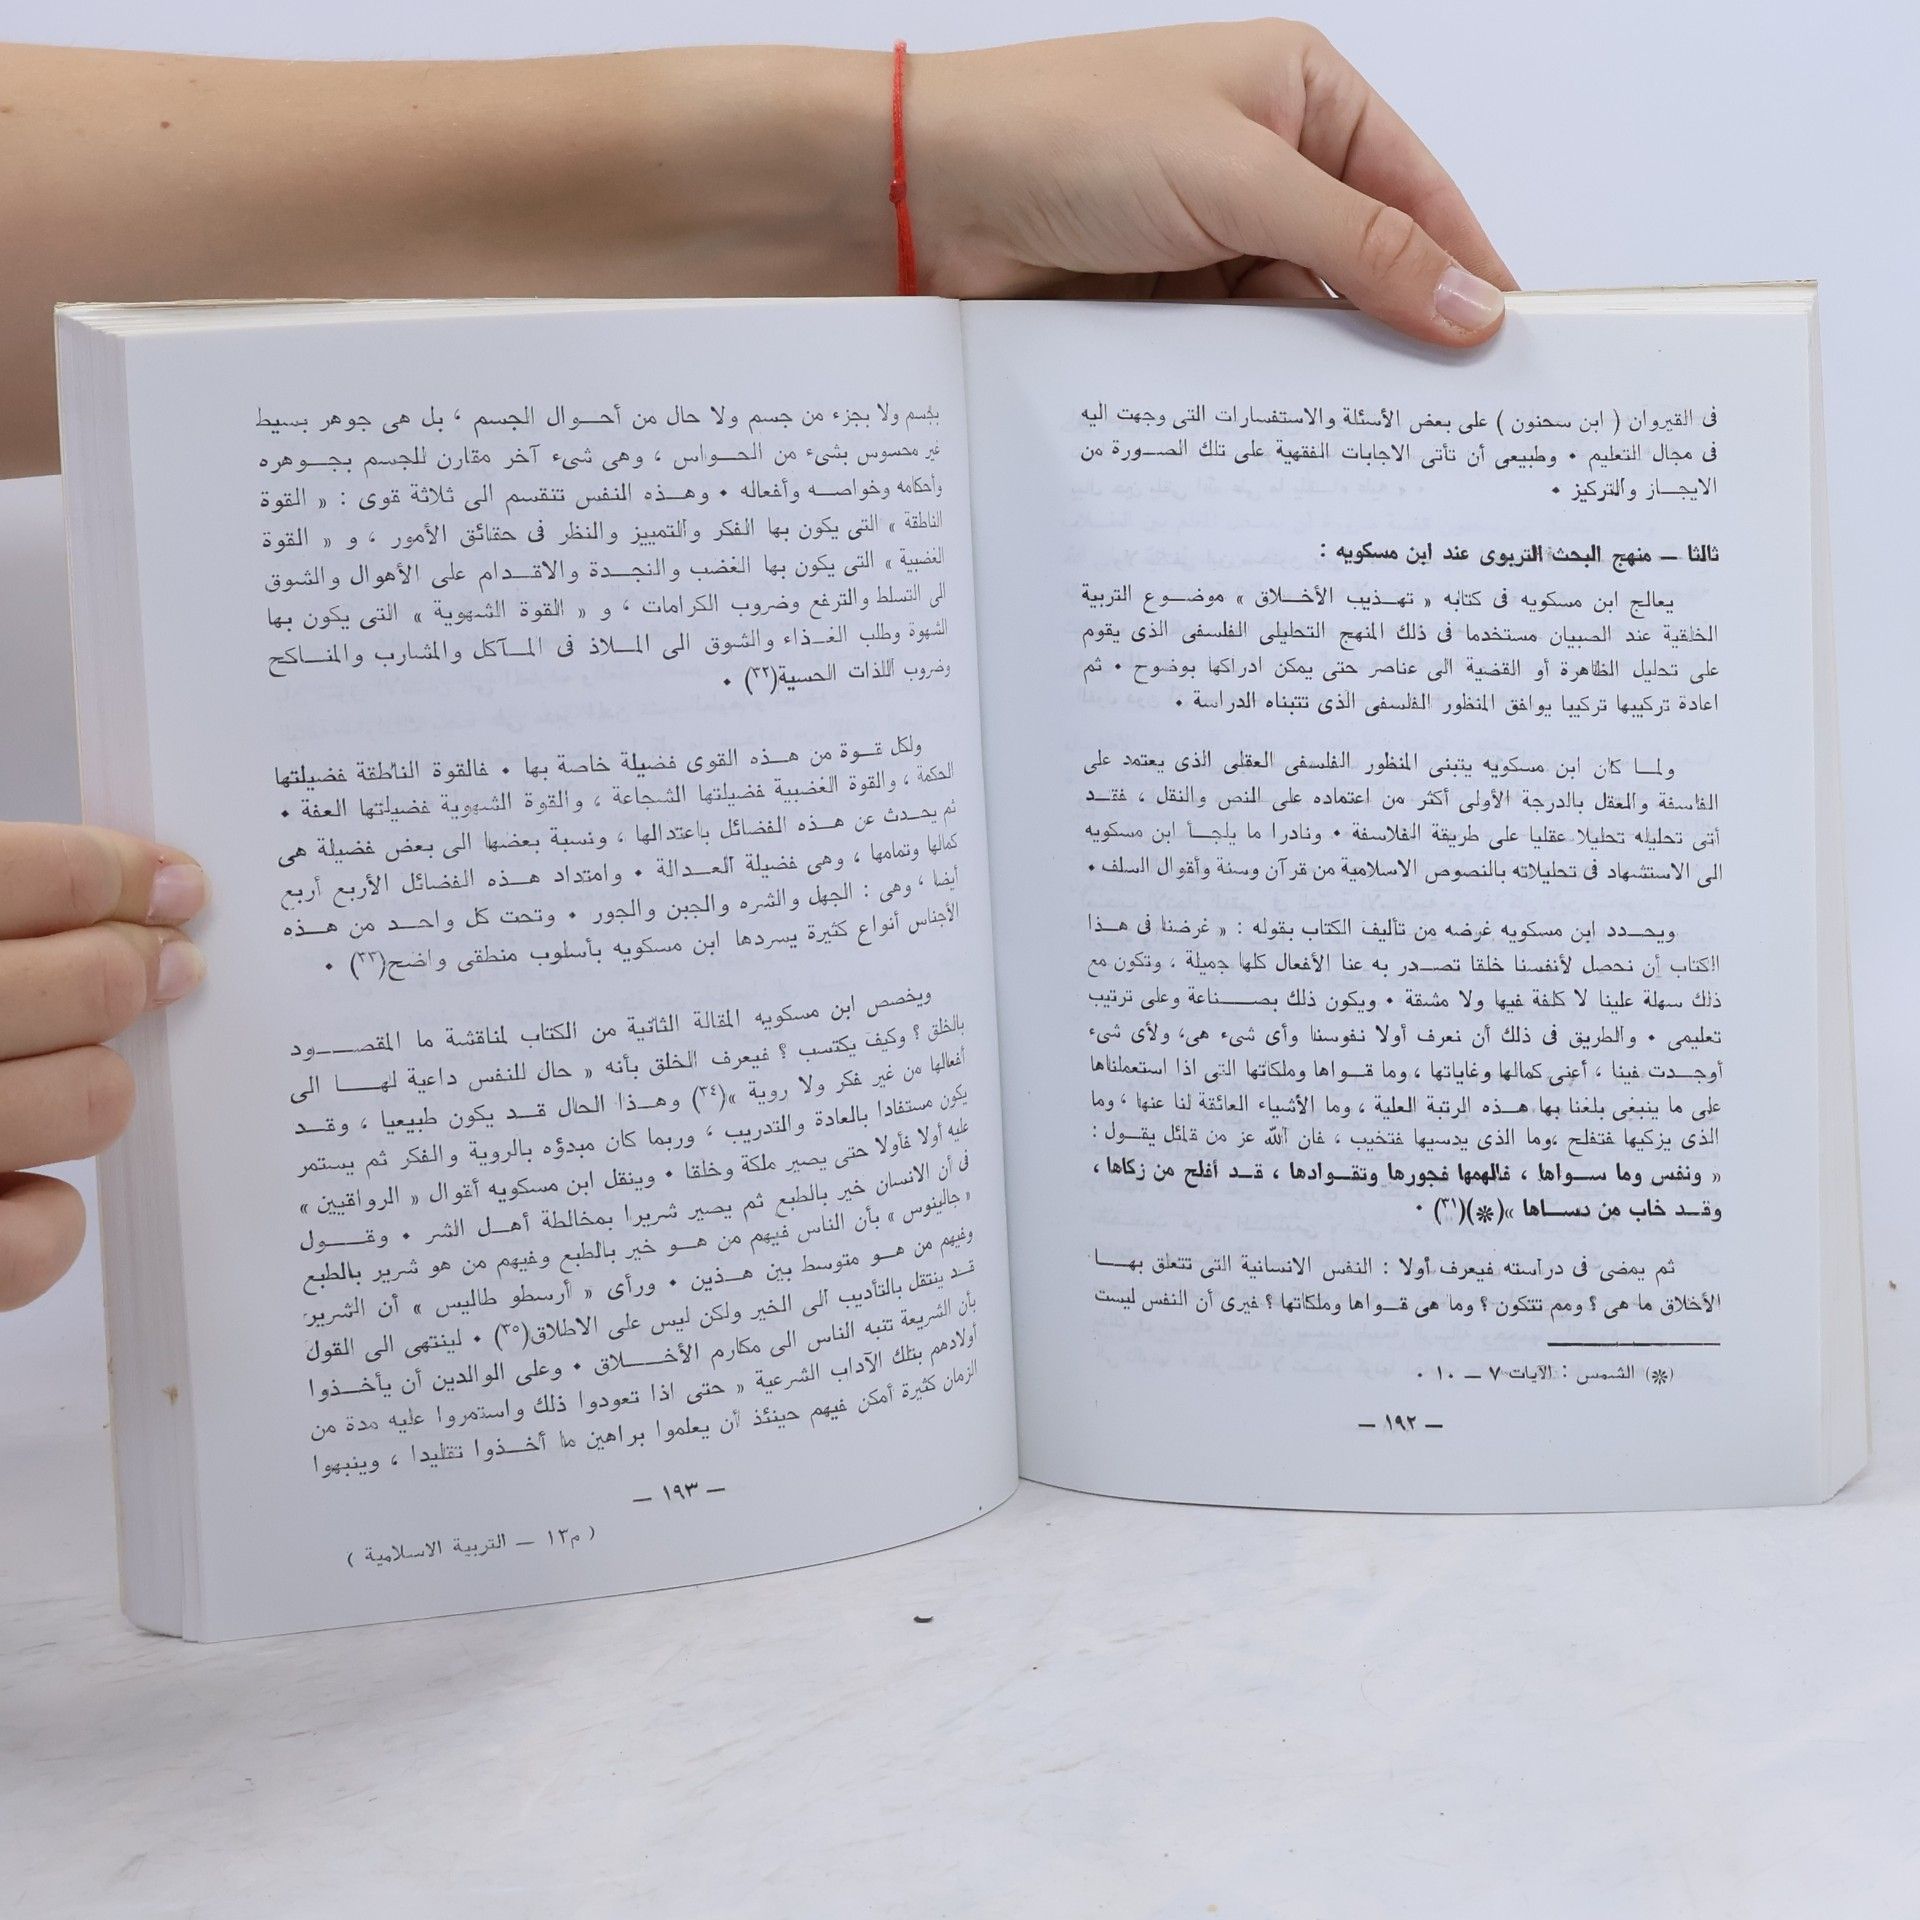 فى القيروان ( ابن سحنون ) على بعض الأسئلة والاستفسارات التى وجهت اليه
فى مجال التعليم • وطبيعى أن تأتى الاجابات الفقهية على تلك الصـــورة من
الايجـاز والتركيز •
ثالثا — منهج البحث التربوى عند ابن مسكويه :
يعالج ابن مسكويه فى كتابه « تهـذيب الأخـلاق » موضـوع التربية
الخلقية عند الصبيان مستخدما فى ذلك المنهج التحليلى الفلسفى الذى يقوم
على تحليل الظاهرة أو القضية الى عناصر حتى يمكن ادراكها بوضوح • ثم
اعادة تركيبها تركيبا يوافق المنظور الفلسفى الذى تتبناه الدراسة •
ولمـا كان ابن مسكويه يتبنى المنظور الفلسفى العقلى الذى يعتمد على
الفلسفة والعقل بالدرجة الأولى أكثر من اعتماده على النص والنقل ، فقـد
أتى تحليله تحليلا عقليا على طريقة الفلاسفة • ونادرا ما يلجـأ ابن مسكويه
الى الاستشهاد فى تحليلاته بالنصوص الاسلامية من قرآن وسنة وأقوال السلف •
ويحـدد ابن مسكويه غرضه من تأليف الكتاب بقوله : « غرضنا فى هـذا
الكتاب أن نحصل لأنفسنا خلقا تصـدر به عنا الأفعال كلها جميلة ، وتكون مع
ذلك سهلة علينا لا كلفة فيها ولا مشقة • ويكون ذلك بصـــناعة وعلى ترتيب
تعليمى • والطريق فى ذلك أن نعرف أولا نفوسنا وأى شىء هى، ولأى شىء
أوجـدت فينا ، أعنى كمالها وغاياتها ، وما قـواها وملكاتها التى اذا استعملناها
على ما ينبغى بلغنا بها هـذه الرتبة العلية ، وما الأشياء العائقة لنا عنها ، وما
الذى يزكيها فتفلح ،وما الذى يدسيها فتخيب ، فان الله عز من قائل يقـول :
« ونفس وما سـواها ، فالهمها فجورها وتقـوادها ، قـد أفلح من زكاها ،
وقـد خاب من دسـاها »(✽)(٣١) •
ثم يمضى فى دراسته فيعرف أولا : النفس الانسانية التى تتعلق بهـــا
الأخلاق ما هى ؟ ومم تتكون ؟ وما هى قـواها وملكاتها ؟ فيرى أن النفس ليست
(✽) الشمس : الآيات ٧ — ١٠ •
— ١٩٢ —
بجسم ولا بجزء من جسم ولا حال من أحـــوال الجسم ، بل هى جوهر بسيط
غير محسوس بشىء من الحـــواس ، وهى شىء آخر مقارن للجسم بجــوهره
وأحكامه وخواصــه وأفعاله • وهـــذه النفس تنقسم الى ثلاثة قوى : « القوة
الناطقة » التى يكون بها الفكر والتمييز والنظر فى حقائق الأمور ، و « القوة
الغضبية » التى يكون بها الغضب والنجـدة والاقـدام على الأهوال والشوق
الى التسلط والترفع وضروب الكرامات ، و « القوة الشهوية » التى يكون بها
الشهوة وطلب الغـذاء والشوق الى المـلاذ فى المـآكل والمشارب والمنـاكح
وضروب اللذات الحسية(٣٢) •
ولكل قـوة من هـــذه القوى فضيلة خاصة بها • فالقوة الناطقة فضيلتها
الحكمة ، والقوة الغضبية فضيلتها الشجاعة ، والقوة الشهوية فضيلتها العفة •
ثم يحـدث عن هـــذه الفضائل باعتدالها ، ونسبة بعضها الى بعض فضيلة هى
كمالها وتمامها ، وهى فضيلة العـدالة • وامتداد هـــذه الفضائل الأربع أربع
أيضا ، وهى : الجهل والشره والجبن والجور • وتحت كل واحـد من هـــذه
الأجناس أنواع كثيرة يسردها ابن مسكويه بأسلوب منطقى واضح(٣٣) •
ويخصص ابن مسكويه المقالة الثانية من الكتاب لمناقشة ما المقصـــود
بالخلق ؟ وكيف يكتسب ؟ فيعرف الخلق بأنه « حال للنفس داعية لهـــا الى
أفعالها من غير فكر ولا روية »(٣٤) وهـــذا الحال قـد يكون طبيعيا ، وقـد
يكون مستفادا بالعادة والتدريب ، وربما كان مبدؤه بالروية والفكر ثم يستمر
عليه أولا فأولا حتى يصير ملكة وخلقا • وينقل ابن مسكويه أقوال « الرواقيين »
فى أن الانسان خير بالطبع ثم يصير شريرا بمخالطة أهـل الشر • وقـــول
« جالينوس » بأن الناس فيهم من هـو خير بالطبع وفيهم من هو شرير بالطبع
وفيهم من هـو متوسط بين هـــذين • ورأى « أرسطو طاليس » أن الشرير
قـد ينتقل بالتأديب الى الخير ولكن ليس على الاطلاق(٣٥) • لينتهى الى القول
بأن الشريعة تنبه الناس الى مكارم الأخـــلاق • وعلى الوالدين أن يأخـذوا
أولادهم بتلك الآداب الشرعية « حتى اذا تعودوا ذلك واستمروا عليه مدة من
الزمان كثيرة أمكن فيهم حينئذ أن يعلموا براهين ما أخـذوا تقليدا ، وينبهوا
— ١٩٣ —
( م١٣ — التربية الاسلامية )